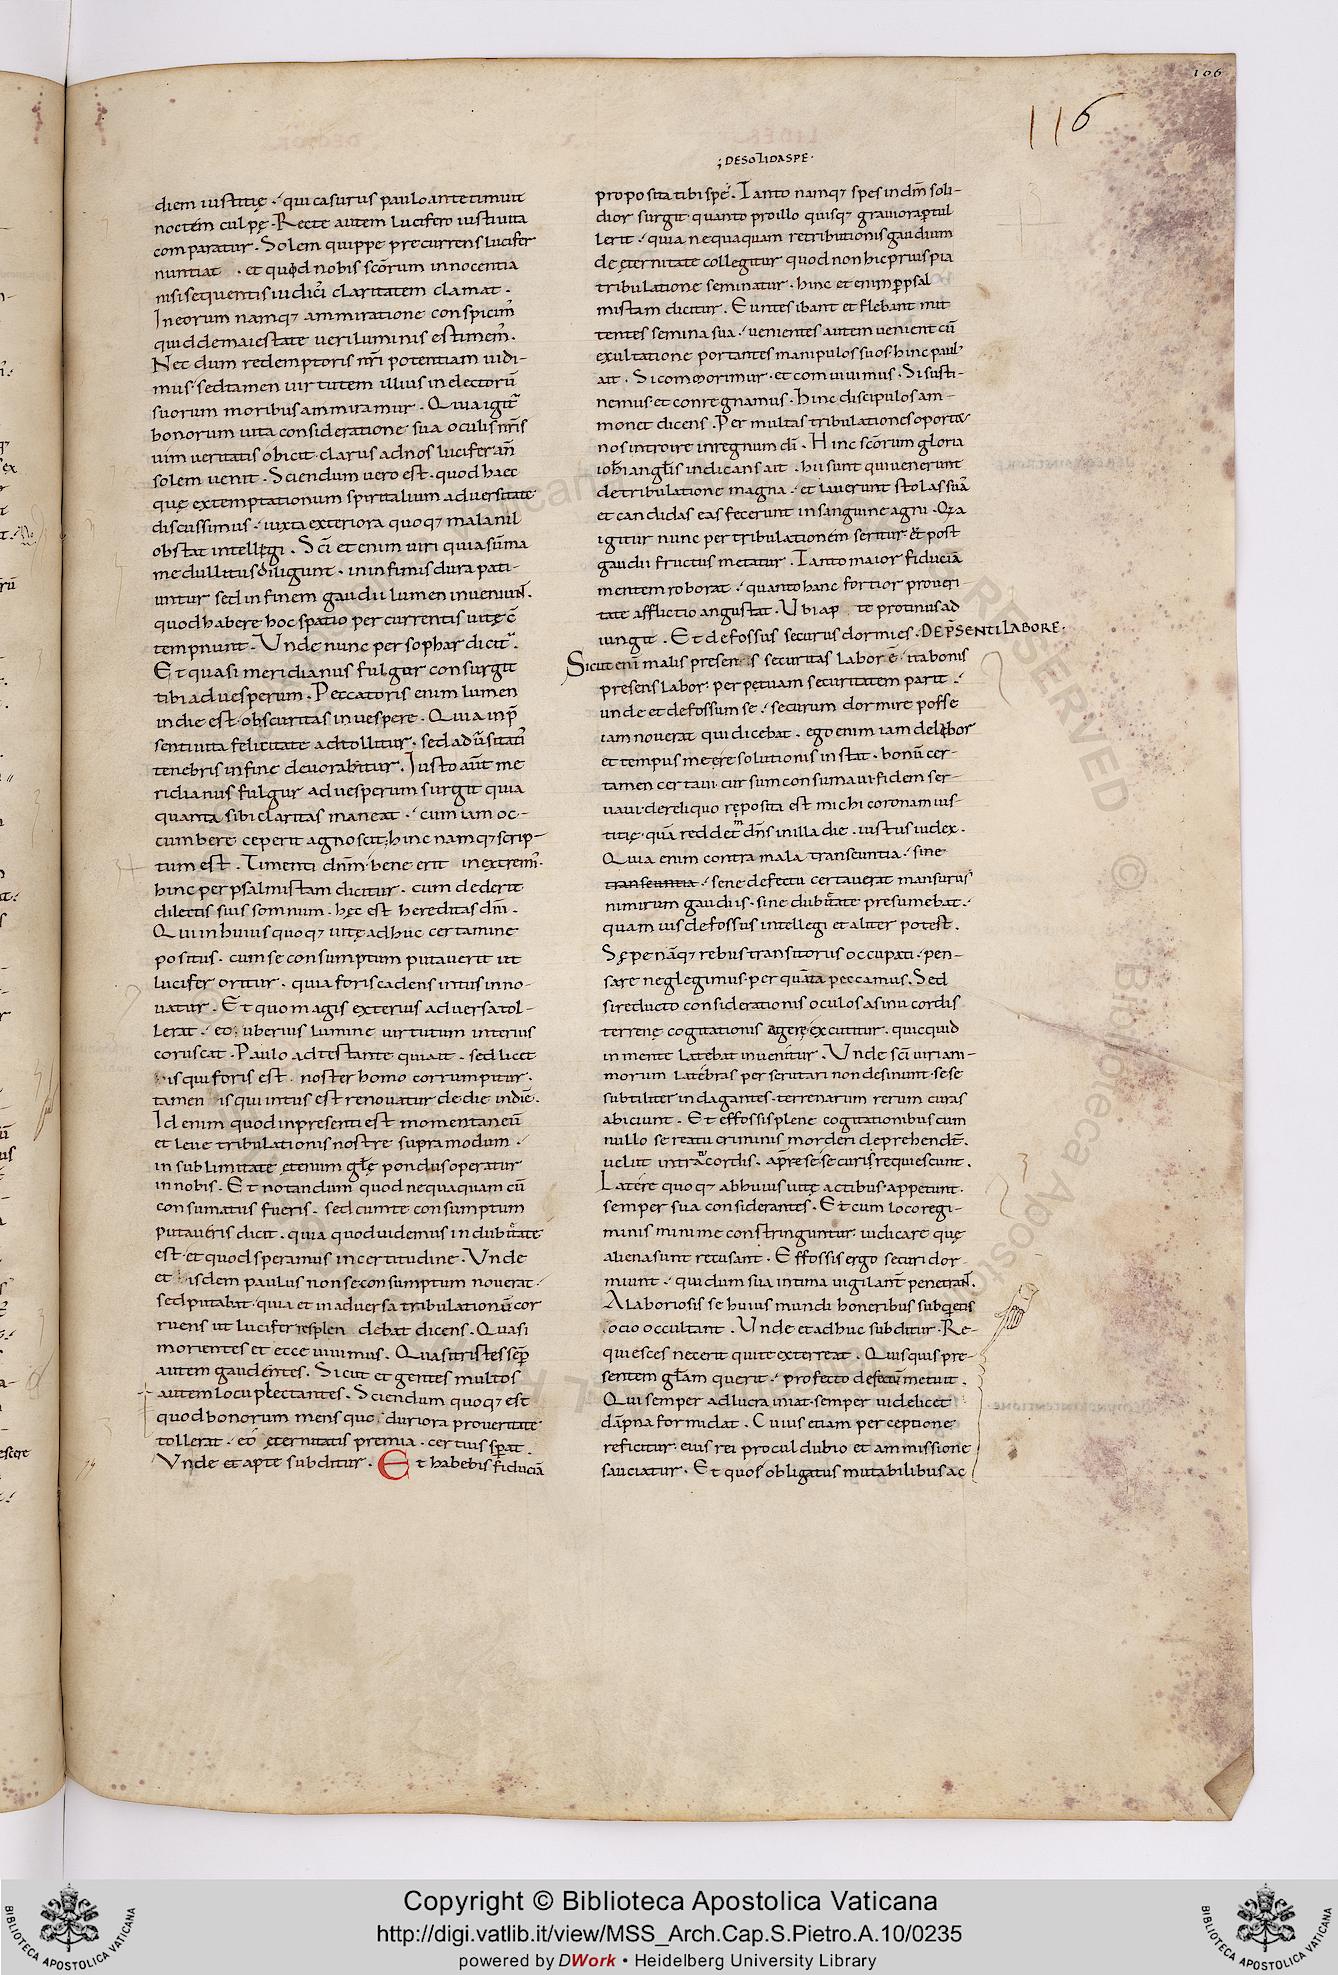 106
116
; DE SOLIDA SPE ·
diem iustitię · qui casurus paulo ante timuit
noctem culpę · Recte autem lucifero iusti uita
comparatur · Solem quippe precurrens lucifer
nuntiat · et quid nobis scōrum innocentia
nisi sequentis iudici claritatem clamat ·
In eorum namq; ammiratione conspicim̄
quid de maiestate ueri luminis estimem̄ ·
Nec dum redemptoris nr̄i potentiam uidi-
mus · sed tamen uirtutem illius in electorū
suorum moribus ammiramur · Quia igit̄
bonorum uita consideratione sua oculis nr̄is
uim ueritatis obicit · clarus ad nos lucifer añ
solem uenit · Sciendum uero est · quod haec
quę ex temptationum spiritalium aduersitate
discussimus · iuxta exteriora quoq; mala nil
obstat intellegi · Sc̄i et enim uiri quia sūma
medullitus diligunt · in infimis dura pati-
untur sed in finem gaudii lumen inueniun̄ ·
quod habere hoc spatio percurrentis uitę c̄
tempnunt · Unde nunc per sophar dicit̄ ·
Et quasi meridianus fulgur consurgit
tibi ad uesperum · Peccatoris enim lumen
in die est · obscuritas in uespere · Quia in p̄
senti uita felicitate adtollitur · sed adūsitati
tenebris in fine deuorabitur · Iusto aut̄ me
ridianus fulgur ad uesperum surgit quia
quanta sibi claritas maneat · cum iam oc-
cumbere ceperit agnoscit; hinc namq; scrip-
tum est · Timenti dn̄m bene erit in extrem̄ ·
hinc per psalmistam dicitur · cum dederit
dilectis suis somnum · hęc est hereditas dn̄i ·
Qui in huius quoq; uitę adhuc certamine
positus · cum se consumptum putauerit ut
lucifer oritur · quia foris cadens intus inno-
uatur · Et quo magis exterius aduersa tol-
lerat · eo uberius lumine uirtutum interius
coruscat · Paulo adtestante qui ait · sed licet
is qui foris est · noster homo corrumpitur ·
tamen is qui intus est renouatur de die in diē ·
Id enim quod in presenti est momentaneū
et leue tribulationis nostre supra modum ·
in sublimitate ęternum glę pondus operatur
in nobis · Et notandum quod nequaquam cū
consumatus fueris · sed cum te consumptum
putaueris dicit · quia quod uidemus in dubitate
est · et quod speramus in certitudine · Unde
et isdem paulus non se consumptum nouerat ·
sed putabat · quia et in aduersa tribulationū cor
ruens ut lucifer resplen debat dicens · Quasi
morientes et ecce uiuimus · Quasi tristes sēp
autem gaudentes · Sicut et gentes multos
autem locuplectantes · Sciendum quoq; est
quod bonorum mens quo duriora pro ueritate
tollerat · eo ęternitatis premia · certius sperat ·
Unde et apte subditur · Et habebis fiduciā
proposita tibi spē · Tanto namq; spes in dn̄m soli-
dior surgit · quanto pro illo quisq; grauiora ptul
lerit · quia nequaquam retributionis gaudium
de ęternitate collegitur quod non hic prius pia
tribulatione seminatur · hinc et enim p psal
mistam dicitur · Euntes ibant et flebant mit
tentes semina sua · uenientes autem uenient cū
exultatione portantes manipulos suos · hinc paul'
ait · Si commorimur · et conuiuimus · Si susti-
nemus · et conregnamus · hinc discipulos am-
monet dicens · Per multas tribulationes oportet
nos introire in regnum dī · Hinc scōrum gloria
ioh̄i angl̄s indicans ait · hii sunt qui uenerunt
de tribulatione magna · et lauerunt stolas suā
et candidas eas fecerunt in sanguine agni · Qia
igitur nunc per tribulationem seritur · et post
gaudii fructus metatur · Tanto maior fiduciā
mentem roborat · quanto hanc fortior pro ueri-
tate afflictio angustat · Ubi ap te protinus ad
iungit · Et defossus securus dormies · DE PSENTI LABORE ·
Sicut eni malis presens securitas labor ē · ita bonis
presens labor · perpetuam securitatem parit ·
unde et defossum se · securum dormire posse
iam nouerat qui dicebat · ego enim iam delibor
et tempus meę resolutionis instat · bonū cer-
tamen certaui · cursum consumaui · fidem ser-
uaui · de reliquo reposita est michi corona ius-
titię · quā reddet m̄ dn̄s in illa die · iustus iudex ·
Quia enim contra mala transeuntia · sine
transeuntia · sene defectu certauerat mansuris
nimirum gaudiis · sine dubitate presumebat ·
quam uis defossus intellegi et aliter potest ·
Sępe nāq; rebus transitoriis occupati · pen-
sare neglegimus · per quāta peccamus · Sed
si reducto considerationis oculos a sinu cordis
terrenę cogitationis agere excutitur · quicquid
in mente latebat inuenitur · Unde sc̄i uiri ani-
morum latebras perscrutari non desinunt · sese
subtiliter indagantes · terrenarum rerum curas
abiciunt · Et effossis plene cogitationibus cum
nullo se reatu criminis morderi deprehendt̄ ·
uelut intra cordis · ap̄re se securis requiescunt ·
Latere quoq; ab huius uitę actibus · appetunt ·
semper sua considerantes · Et cum loco regi-
minis minime constringuntur · iudicare quę
aliena sunt recusant · Effossis ergo securi dor-
miunt · qui dum sua intima uigilant̄ penetran̄ ·
A laboriosis se huius mundi honeribus sub quietis
ocio occultant · Unde et adhuc subditur · Re-
quiesces nec erit qui te exterreat · Quisquis pre-
sentem glām querit · profecto defectū metuit ·
Qui semper ad lucra iniat · semper uidelicet
dāpna formidat · Cuius etiam perceptione
reficitur · eius rei procul dubio et ammissione
sauciatur · Et quos obligatus mutabilibus ac
Copyright © Biblioteca Apostolica Vaticana
http://digi.vatlib.it/view/MSS_Arch.Cap.S.Pietro.A.10/0235
powered by DWork • Heidelberg University Library
BIBLIOTECA APOSTOLICA VATICANA
BIBLIOTECA APOSTOLICA VATICANA